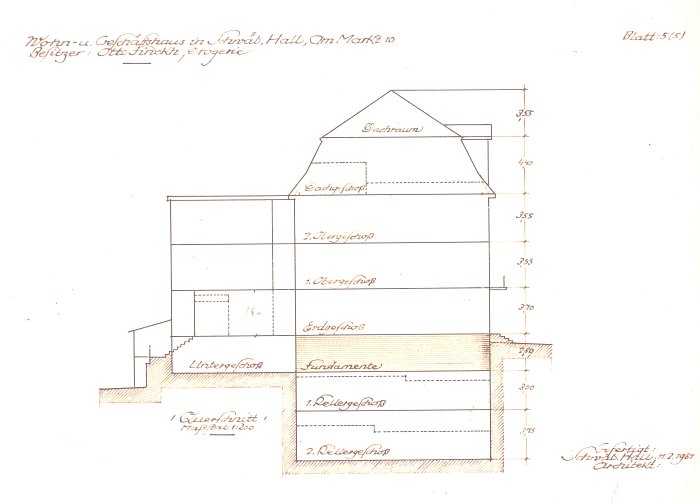 Wohn- u. Geschäftshaus in Schwäb. Hall, Am Markt 10
Besitzer: Otto Drogerie
Blatt: 5 (5)
3,55
Dachraum
4,40
Dachgeschoß
3,55
2. Obergeschoß
3,55
1. Obergeschoß
3,70
Erdgeschoß
Untergeschoß
Fundamente
2,60
3,00
1. Kellergeschoß
Querschnitt
Maßstab 1:200
3,75
2. Kellergeschoß
Gefertigt:
Schwäb. Hall, 11.2.1981
Architekt: